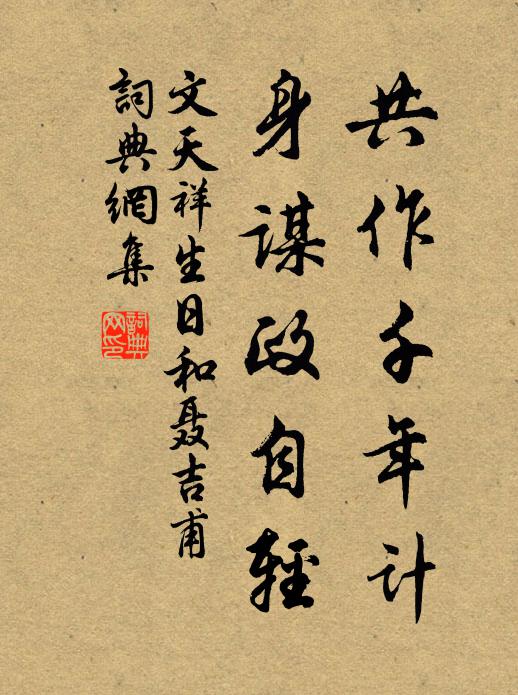 共作千年計
身謀政自輕
文天祥生日和聶吉甫
詞典網集
詞典网印